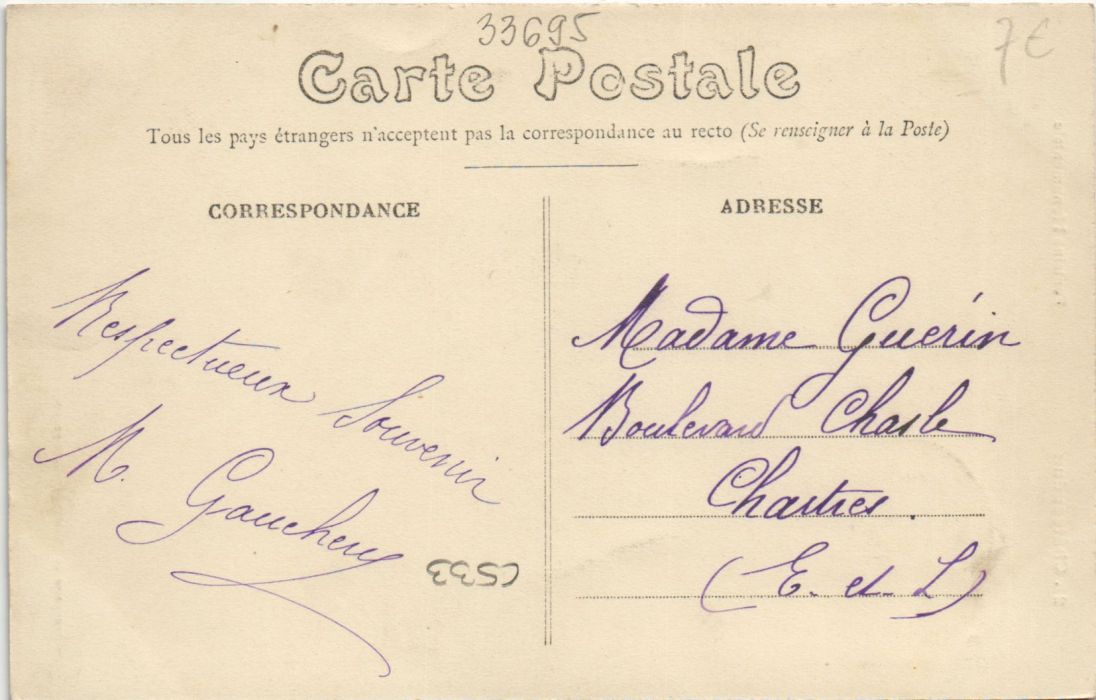 33695
7€
Carte Postale
Tous les pays étrangers n'acceptent pas la correspondance au recto (Se renseigner à la Poste)
CORRESPONDANCE
Respectueux Souvenir
M. Gauchery
CS33
ADRESSE
Madame Guérin
Boulevard Chasle
Chartres.
(E. et. L)